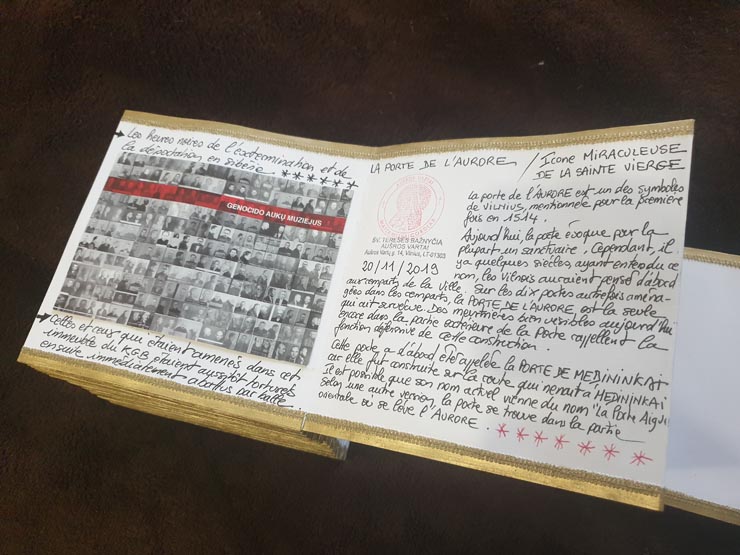 Les heures noires de l'extermination et de
la déportation en sibérie ******
GENOCIDO AUKŲ MUZIEJUS
Celles et ceux qui étaient amenés dans cet
immeuble du KGB étaient aussitôt torturés
ensuite immédiatement abattus par balle.
LA PORTE DE L'AURORE / Icone MIRACULEUSE
DE LA SAINTE VIERGE
ŠV. TERESĖS BAŽNYČIA
AUŠROS VARTAI
Aušros Vartų g. 14, Vilnius, LT-01303
20/11/2019
La porte de l'AURORE est un des symboles
de VILNIUS, mentionnée pour la première
fois en 1514.
Aujourd'hui, la porte évoque pour la
plupart un sanctuaire. Cependant, il
y a quelques siècles, ayant entendu ce
nom, les Vilnois auraient pensé d'abord
aux remparts de la Ville. Sur les dix portes autrefois aména-
gées dans les remparts, la PORTE DE L'AURORE est la seule
qui ait survécue. Des meurtrières bien visibles aujourd'hui
encore dans la partie extérieure de la Porte rappellent la
fonction défensive de cette construction.
Cette porte a d'abord été appelée la PORTE DE MEDININKAI
car elle fut construite sur la route qui menait à MEDININKAI
Il est possible que son nom actuel vienne du nom "la Porte Aigüe
selon une autre version, la porte se trouve dans la partie
orientale où se lève l'AURORE. *******